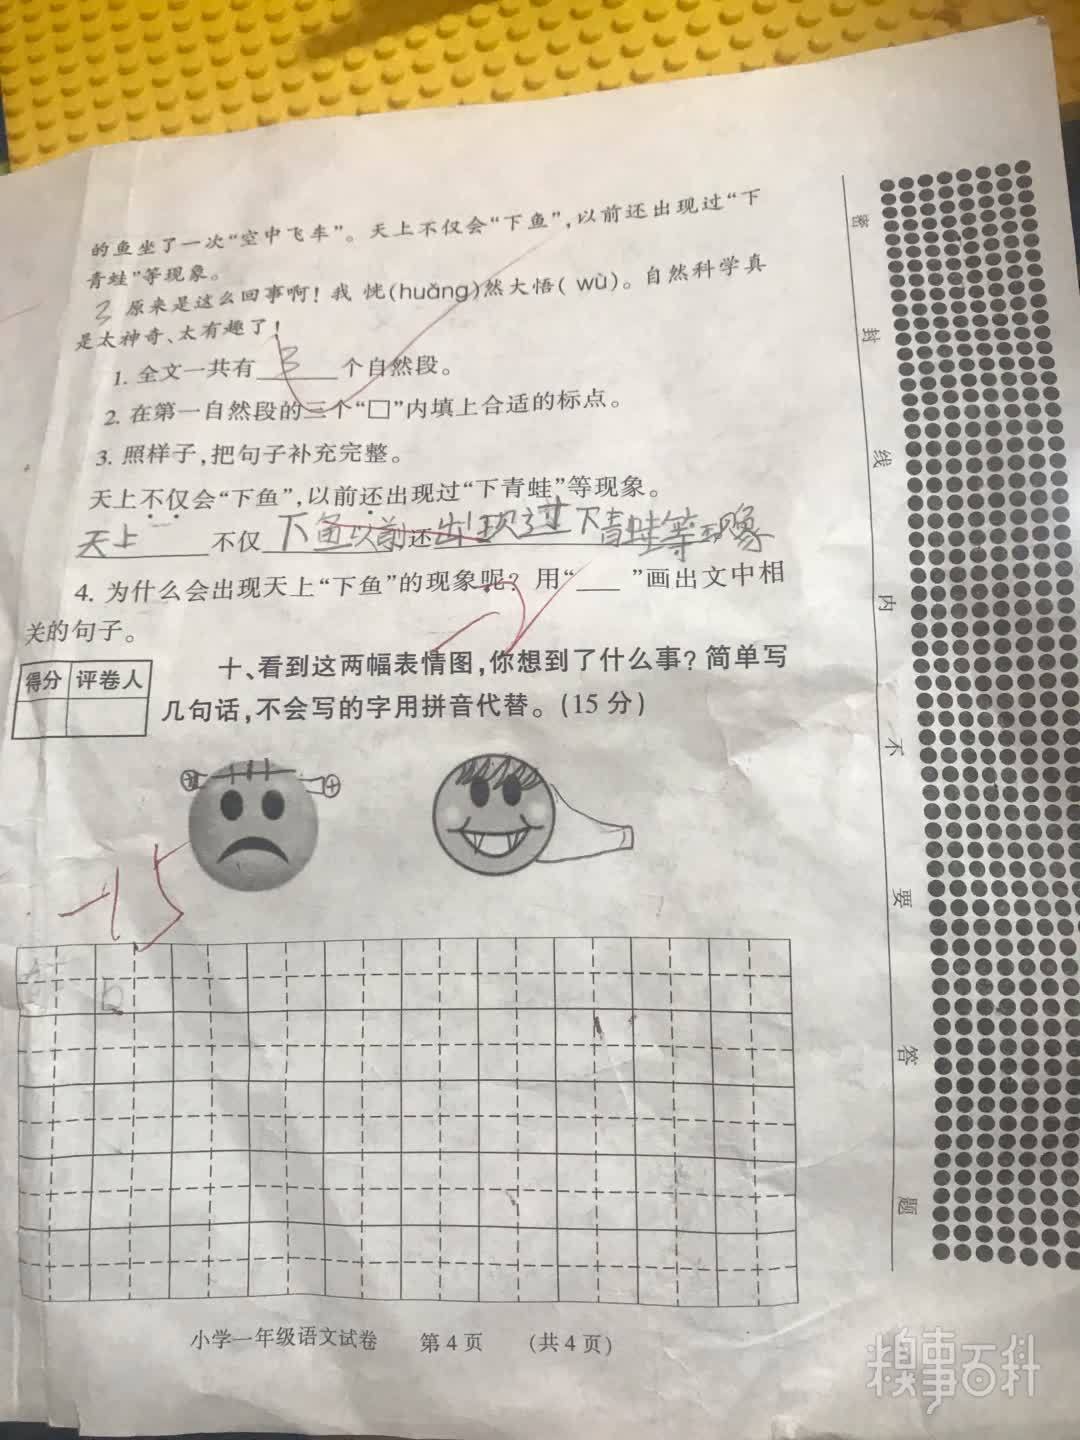 的鱼坐了一次“空中飞车”。天上不仅会“下鱼”，以前还出现过“下
青蛙”等现象。
3 原来是这么回事啊！我 恍(huǎng)然大悟( wù)。自然科学真
是太神奇、太有趣了！
1. 全文一共有 3 个自然段。
2. 在第一自然段的三个“□”内填上合适的标点。
3. 照样子，把句子补充完整。
天上不仅会“下鱼”，以前还出现过“下青蛙”等现象。
天上 不仅 下鱼以前 还 出现过下青蛙等现象
4. 为什么会出现天上“下鱼”的现象呢？用“___”画出文中相
关的句子。
得分 评卷人
十、看到这两幅表情图，你想到了什么事？简单写
几句话，不会写的字用拼音代替。(15 分)
-15
小学一年级语文试卷 第 4 页 (共 4 页)
密 封 线 内 不 要 答 题
糗事百科